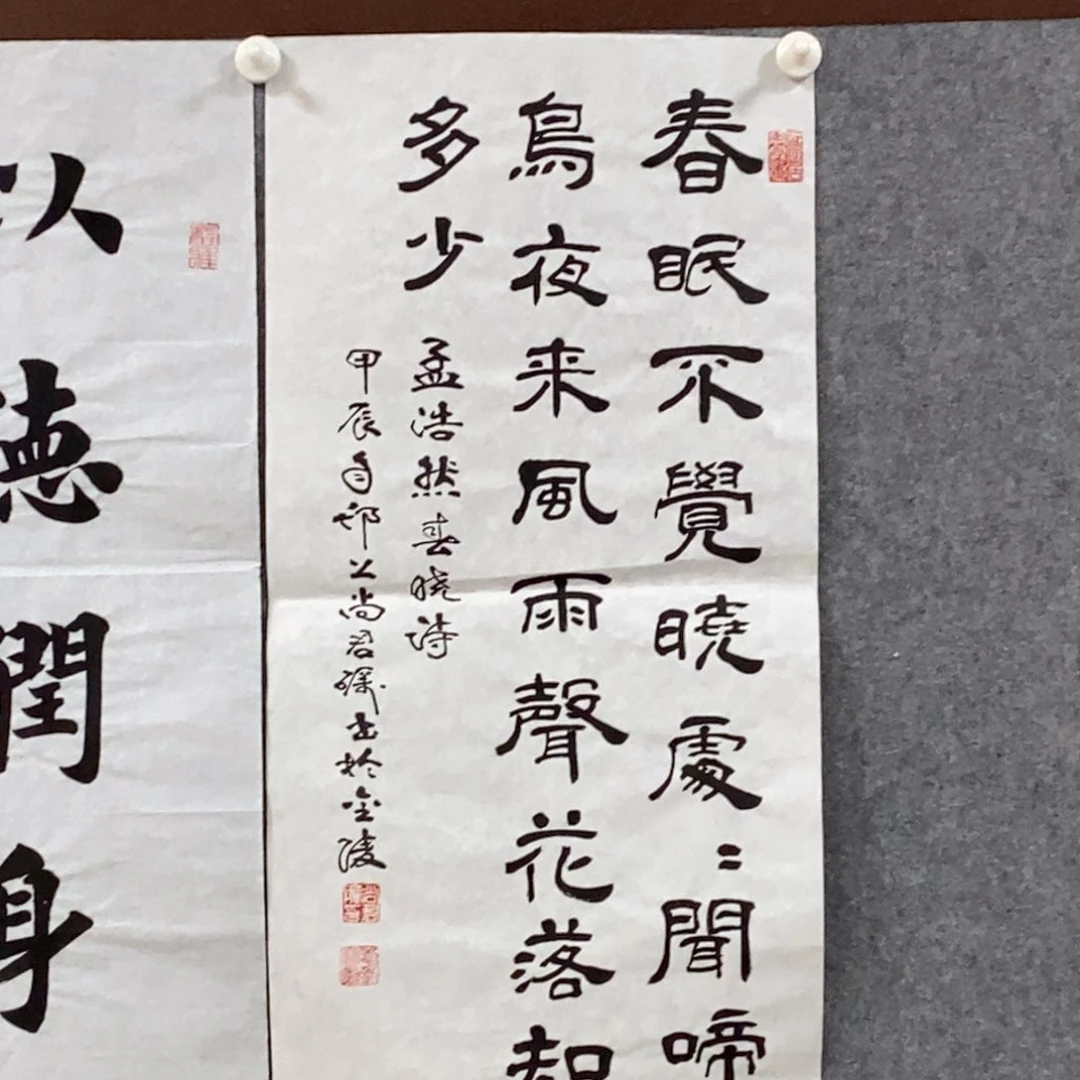 春眠不覺曉處〻聞啼
鳥夜来風雨聲花落知
多少
孟浩然春曉詩
甲辰年邗上尚君礫书於金陵
以德潤身